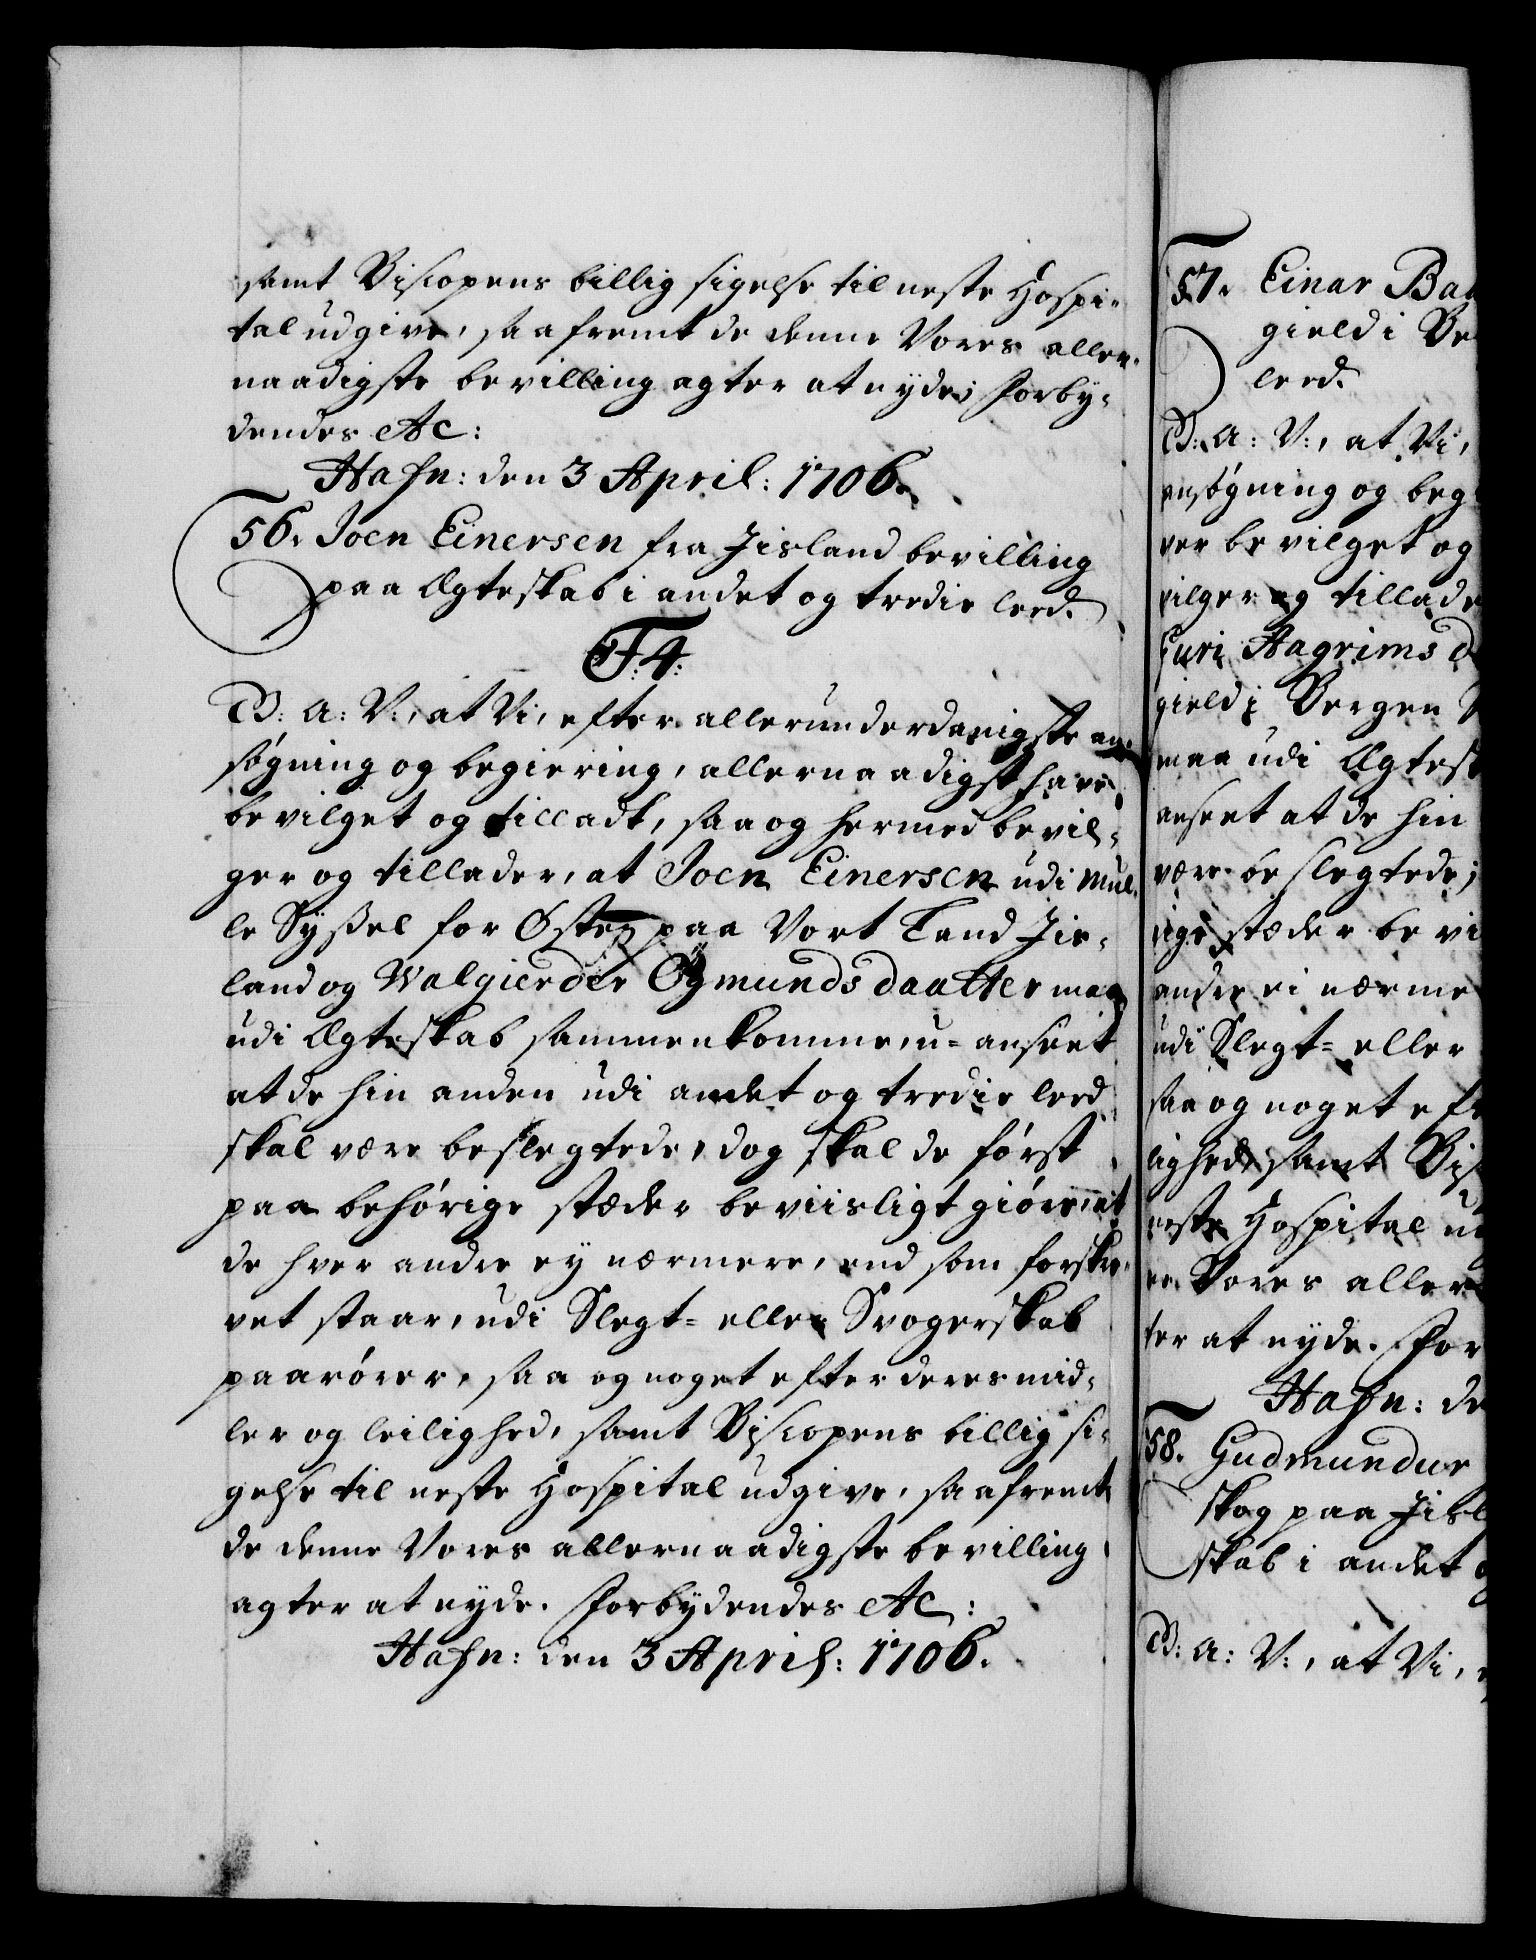 samt Biscopens billig sigelse til neste Hospi-
tal udgive, saafremt de denne Vores aller-
naadigste bevilling agter at nyde; Forby-
dendes etc:
Hafn: den 3 April: 1706.
56. Joen Einersen fra Jisland bevilling
paa Ægteskab i andet og tredie leed.
F. 4:
G: A: V:, at Vi, efter allerunderdanigste an-
søgning og begiering, allernaadigst have
bevilget og tilladt, saa og hermed bevil-
ger og tillader, at Joen Einersen udi Mul-
le Syssel for Østen paa Vort Land Jis-
land og Walgierder Ögmunds daatter maa
udi Ægteskab sammenkomme, u-anseet
at de hin anden udi andet og tredie leed
skal være beslegtede, dog skal de først
paa behørige stæder beviisligt giøre, at
de hver andre ey nærmere, end som forskre-
vet staar, udi Slegt- eller Svogerskab
paarører, saa og noget efter deres mid-
ler og leilighed, samt Biscopens billig si-
gelse til neste Hospital udgive, saafremt
de denne Vores allernaadigste bevilling
agter at nyde. Forbydendes etc:
Hafn: den 3 April: 1706.
57. Einar
gield i
leed.
G: A: V:, at Vi,
ansøgning og
ver bevilget og
vilger og tillader
Guri Aagrims
gield i Bergen
maa udi
anseet at de hin
være beslegtede;
rige stæder
andre ei nærmere
udi Slegt- eller
saa og noget
lighed, samt
neste Hospital
ne Vores
ter at nyde.
Hafn:
58. Gudmundur
skog paa
skab i andet
G: A: V:, at Vi,